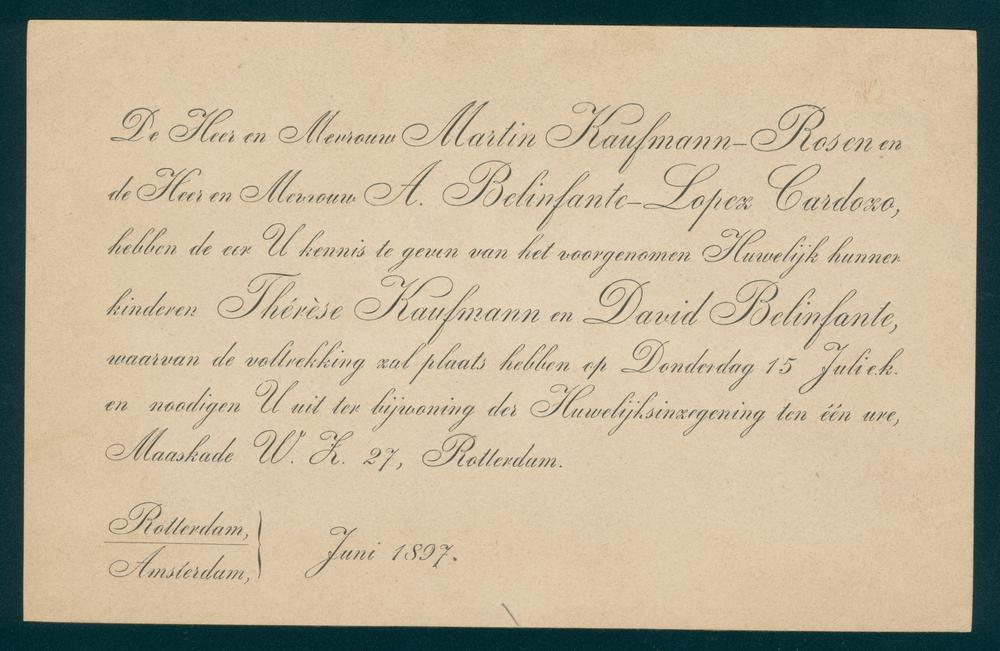 De Heer en Mevrouw Martin Kaufmann–Rosen en
de Heer en Mevrouw A. Belinfante–Lopez Cardozo,
hebben de eer U kennis te geven van het voorgenomen Huwelijk hunner
kinderen Thérèse Kaufmann en David Belinfante,
waarvan de voltrekking zal plaats hebben op Donderdag 15 Juli e.k.
en noodigen U uit ter bijwoning der Huwelijksinzegening ten één ure,
Maaskade W. Z. 27, Rotterdam.
Rotterdam,
Amsterdam,
Juni 1897.